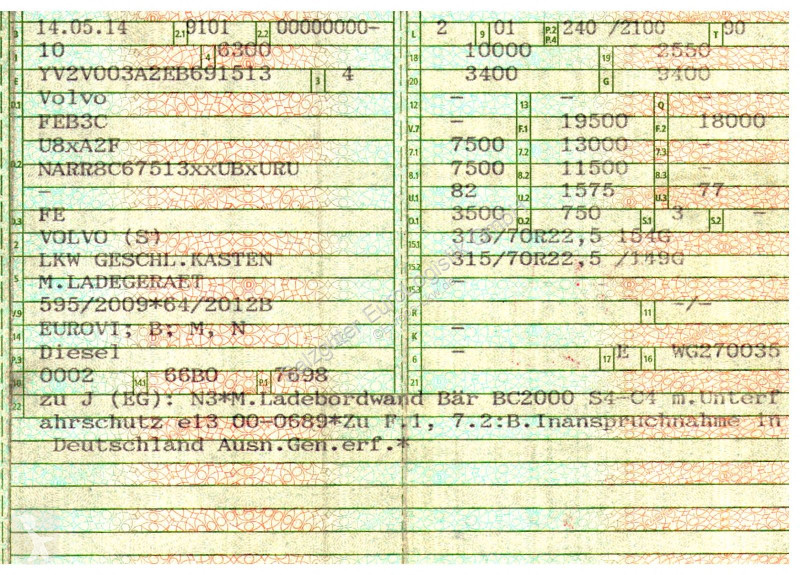 B 14.05.14 2.1 9101 2.2 00000000-
J 10 4 6300
E YV2V003A2EB691513 3 4
D.1 Volvo
FEB3C
U8xA2F
D.2 NARR8C67513xxUBxURU
-
D.3 FE
2 VOLVO (S)
LKW GESCHL.KASTEN
5 M.LADEGERAET
V.9 595/2009*64/2012B
14 EUROVI; B; M, N
P.3 Diesel
10 0002 14.1 66B0 P.1 7698
L 2 9 01 P.2 P.4 240 /2100 T 90
18 10000 19 2550
20 3400 G 9400
12 - 13 - Q -
V.7 - F.1 19500 F.2 18000
7.1 7500 7.2 13000 7.3 -
8.1 7500 8.2 11500 8.3 -
U.1 82 U.2 1575 U.3 77
O.1 3500 O.2 750 S.1 3 S.2 -
15.1 315/70R22,5 154G
15.2 315/70R22,5 /149G
15.3 -
R 11 -/-
K -
6 - 17 E 16 WG270035
21
22 zu J (EG): N3*M.Ladebordwand Bär BC2000 S4-C4 m.Unterf
ahrschutz e13 00-0689*Zu F.1, 7.2:B.Inanspruchnahme in
Deutschland Ausn.Gen.erf.*